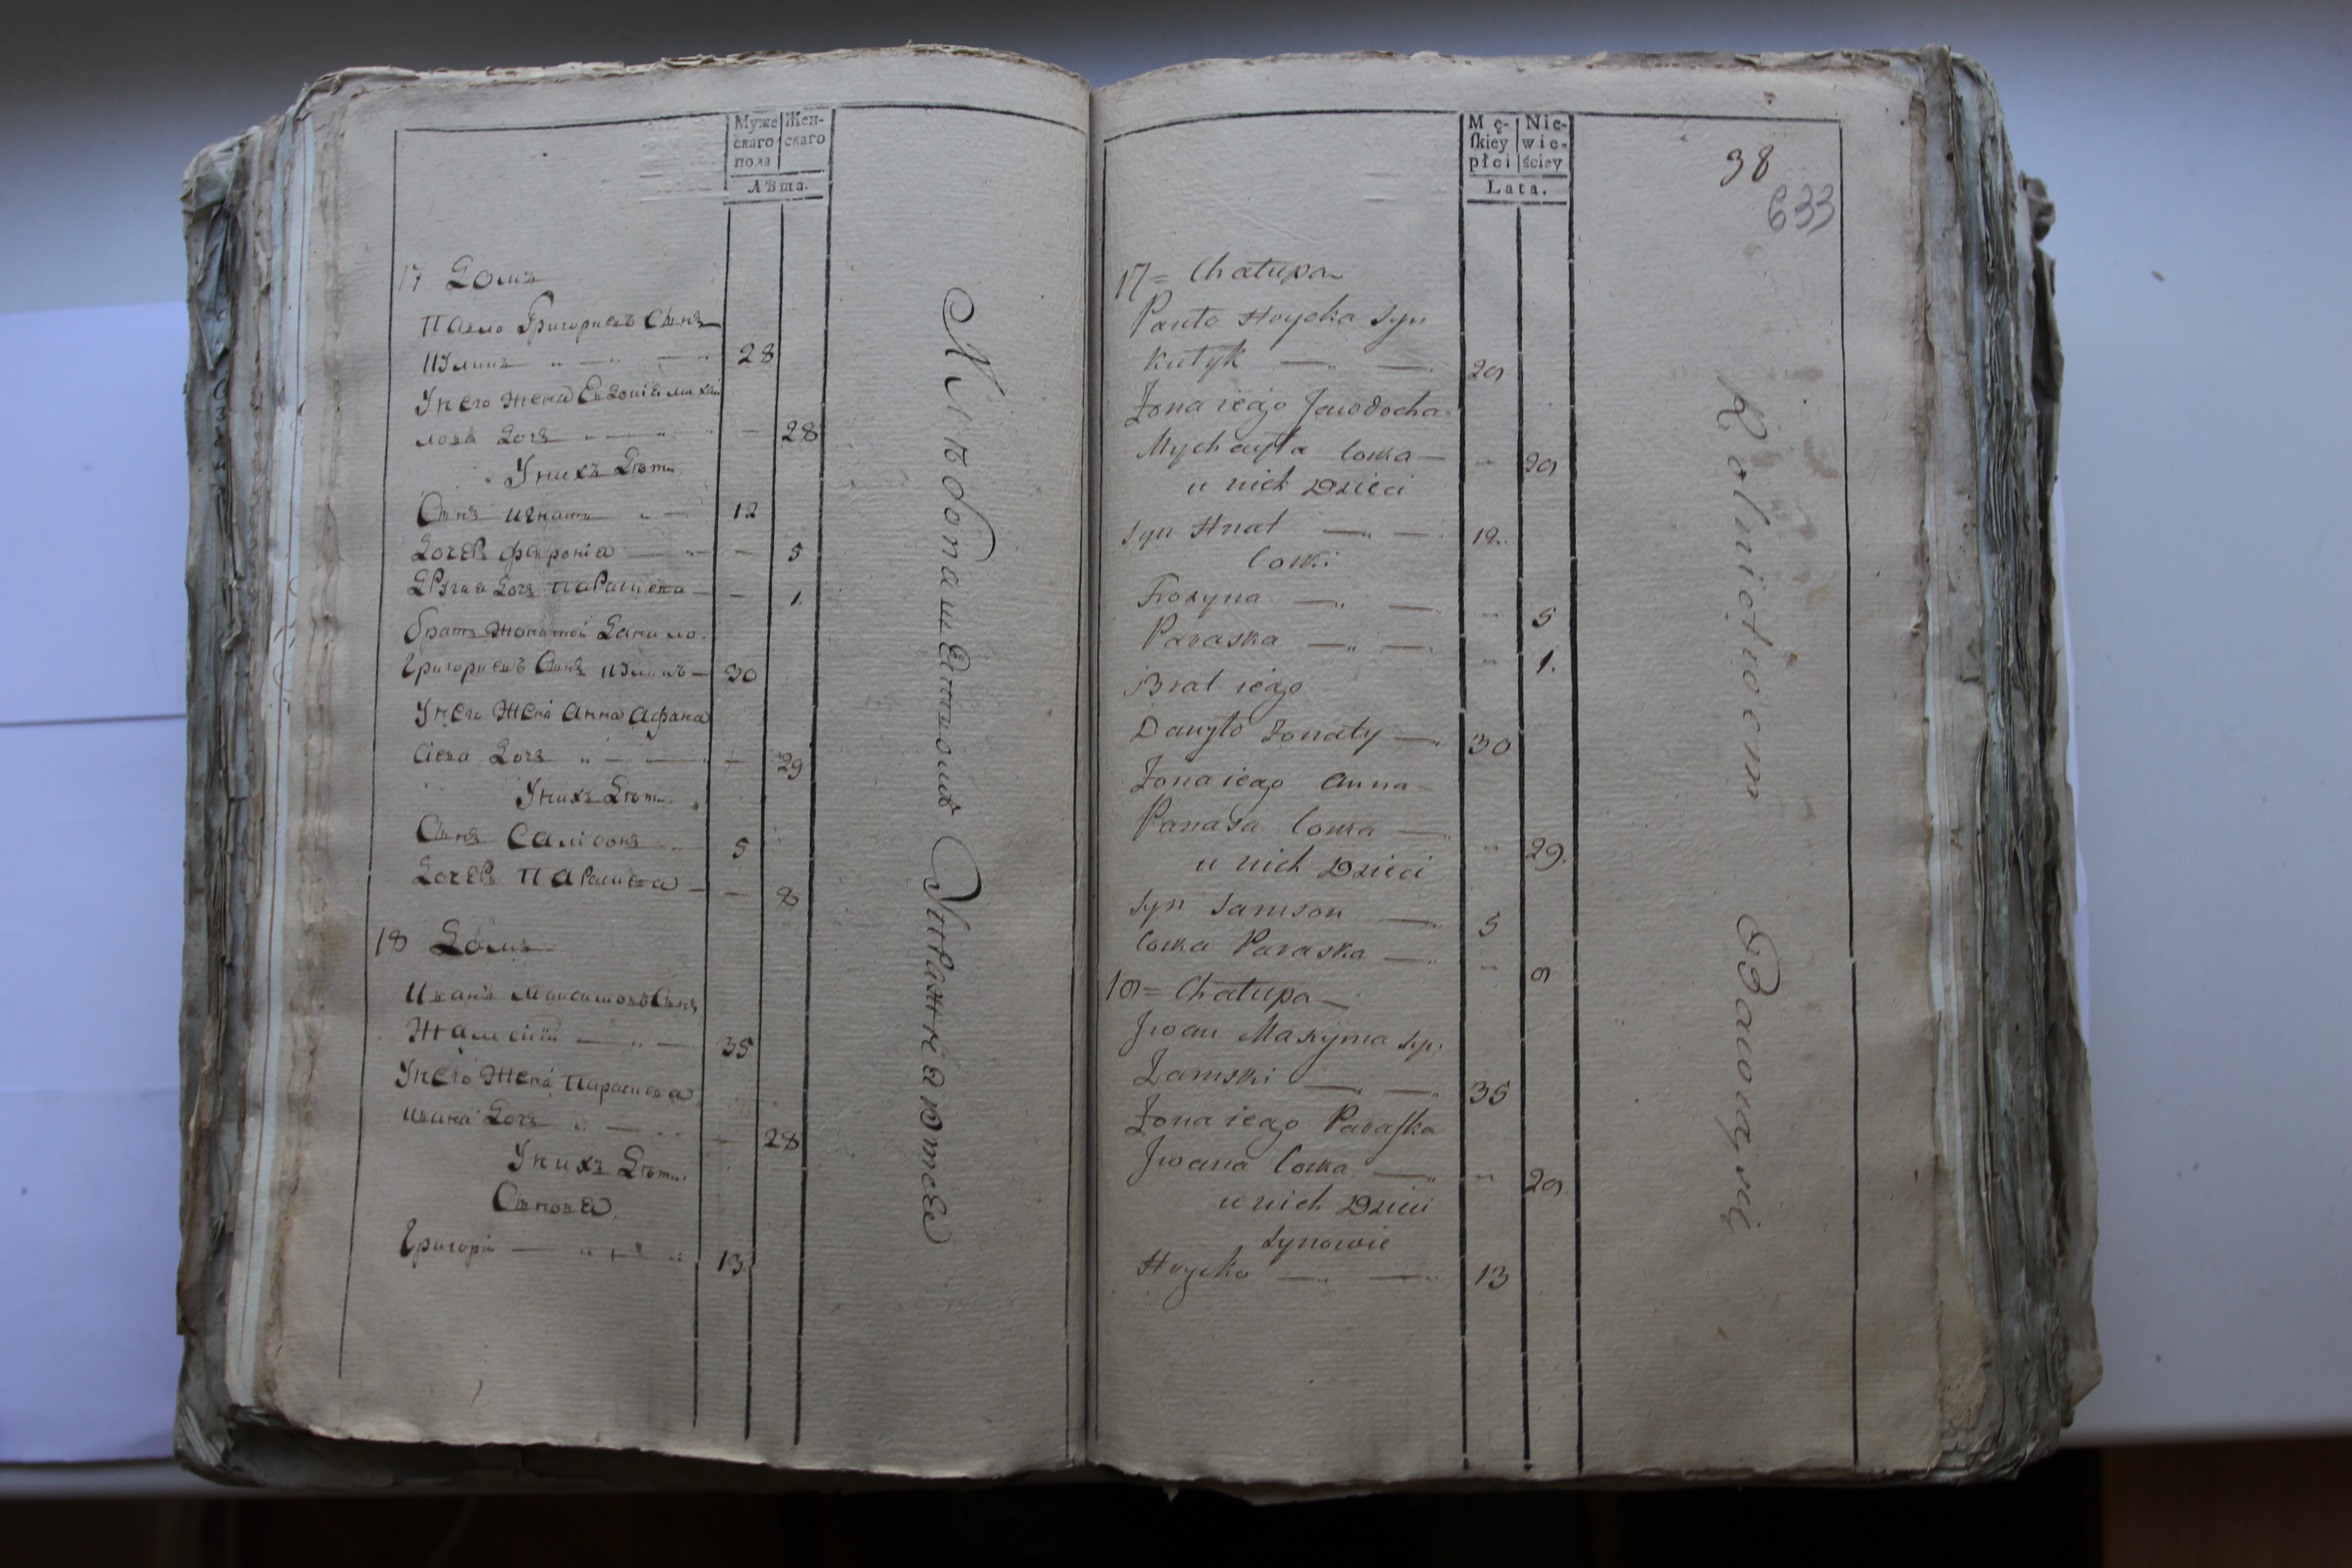 Муже
скаго
пола
Жен-
скаго
Лѣта.
17 Домъ
Павло Григориевъ Сынъ
28
У него жена Евдокіа михаи
лова Дочь 28
У нихъ Дѣти
Сынъ игнатъ 12
Дочерь фавроніа 5
Другаа Дочь Параскева 1.
братъ жонатой Данило
Григориевъ Сынъ 30
У него Жена анна афана
сіева Дочь 29
У нихъ Дѣти
Сынъ Самсонъ 5
Дочерь Параскева 8
18 Домъ
Иванъ Максимовъ Сынъ
Жамскій 35
У него Жена параскева
ивана Дочь 28
У нихъ Дѣти
Сыновеа
Григорій 13
Хлѣбопашествомъ Упражнаютса
Mę-
skiey
płci
Nie-
wie-
ściey
Lata.
38
633
17 = Chałupa
Pawło Hryćka Syn
Kułyk 28
Żona iego Jewdocha
Mychayła Corka 28
u nich Dzieci
Syn Hnat 12.
Corki
Frozyna 5
Paraska 1.
Brat iego
Danyło żonaty 30
Żona iego Anna
Panasa Corka 29.
u nich Dzieci
Syn Samson 5
Corka Paraska 8
18 = Chałupa
Jwan Maxyma Syn
Żamski 35
Żona iego Paraska
Jwana Corka 28
u nich Dzieci
Synowie
Hryćko 13
Rolnictwem Bawią się